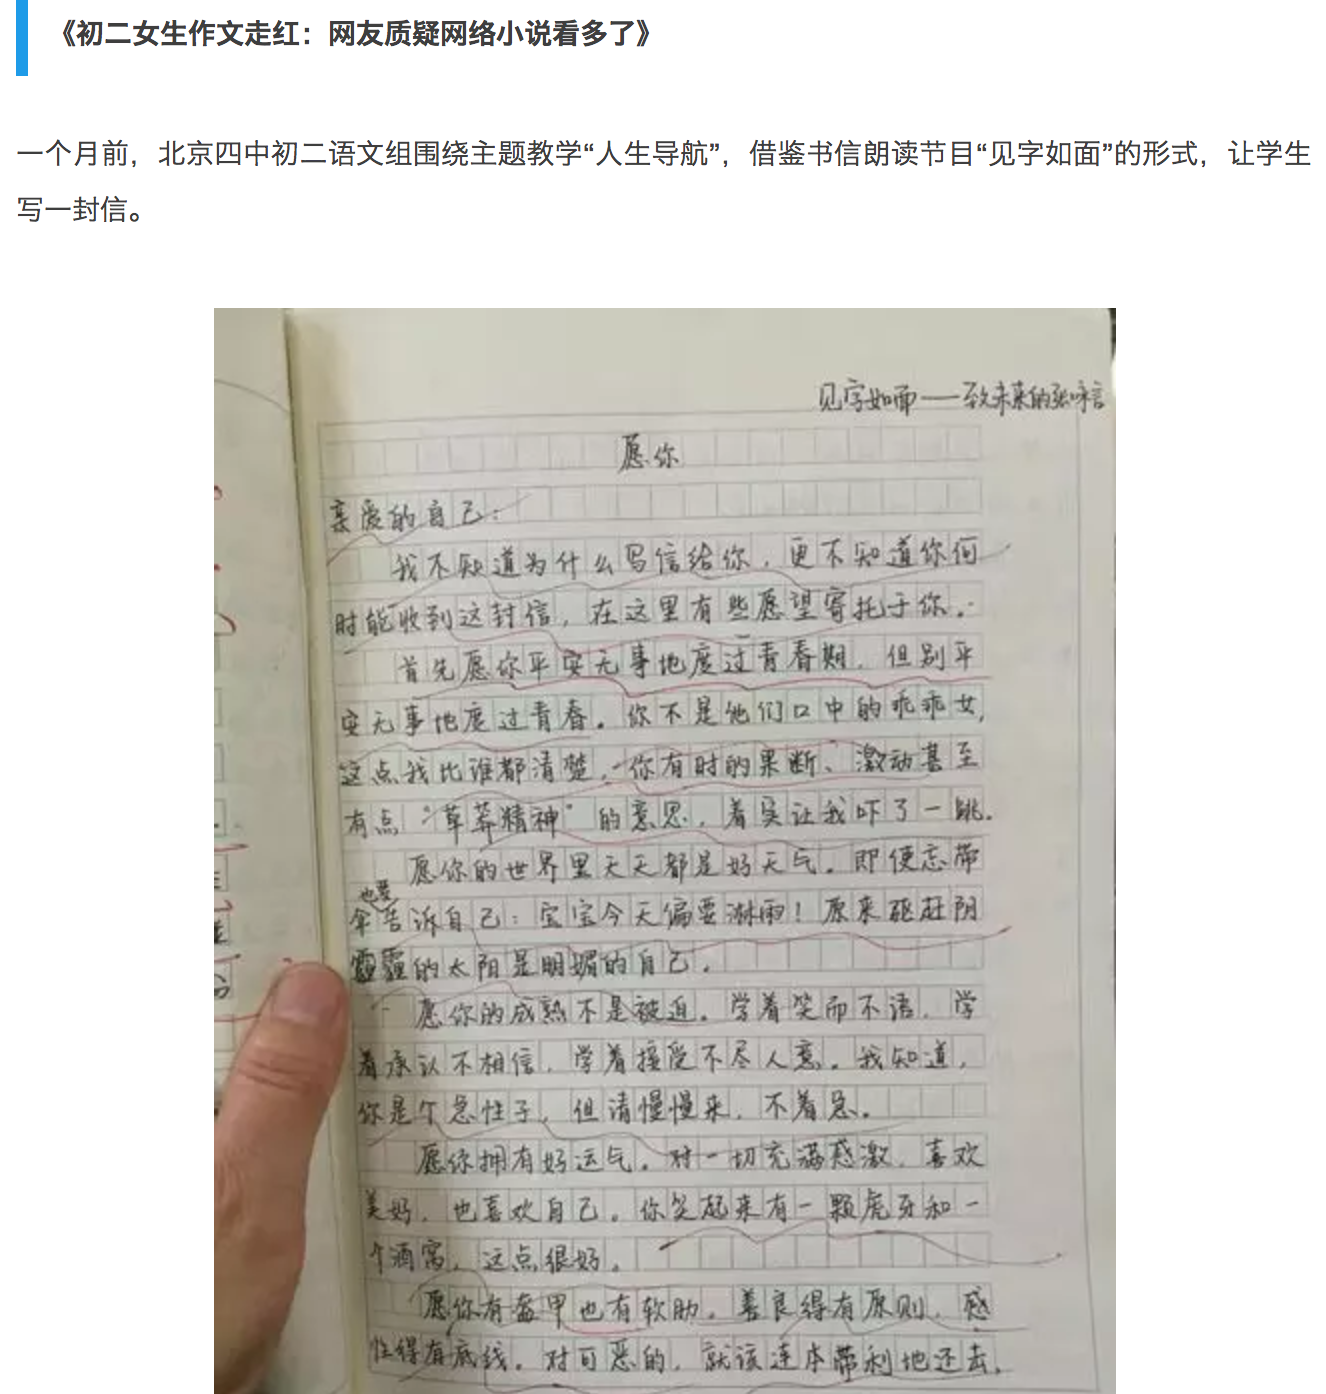 《初二女生作文走红：网友质疑网络小说看多了》
一个月前，北京四中初二语文组围绕主题教学“人生导航”，借鉴书信朗读节目“见字如面”的形式，让学生
写一封信。
见字如面——致未来的张咏言
愿你
亲爱的自己：
我不知道为什么写信给你，更不知道你何
时能收到这封信，在这里有些愿望寄托于你。
首先愿你平安无事地度过青春期，但别平
安无事地度过青春。你不是他们口中的乖乖女，
这点我比谁都清楚。你有时的果断、激动甚至
有点“草莽精神”的意思，着实让我吓了一跳。
愿你的世界里天天都是好天气。即便忘带
伞也要告诉自己：宝宝今天偏要淋雨！原来驱赶阴
霾的太阳是明媚的自己。
愿你的成熟不是被迫。学着笑而不语，学
着承认不相信，学着接受不尽人意。我知道，
你是个急性子，但请慢慢来，不着急。
愿你拥有好运气。对一切充满感激，喜欢
美好，也喜欢自己。你笑起来有一颗虎牙和一
个酒窝，这点很好。
愿你有盔甲也有软肋。善良得有原则，感
性得有底线。对可恶的，就该连本带利地还去，